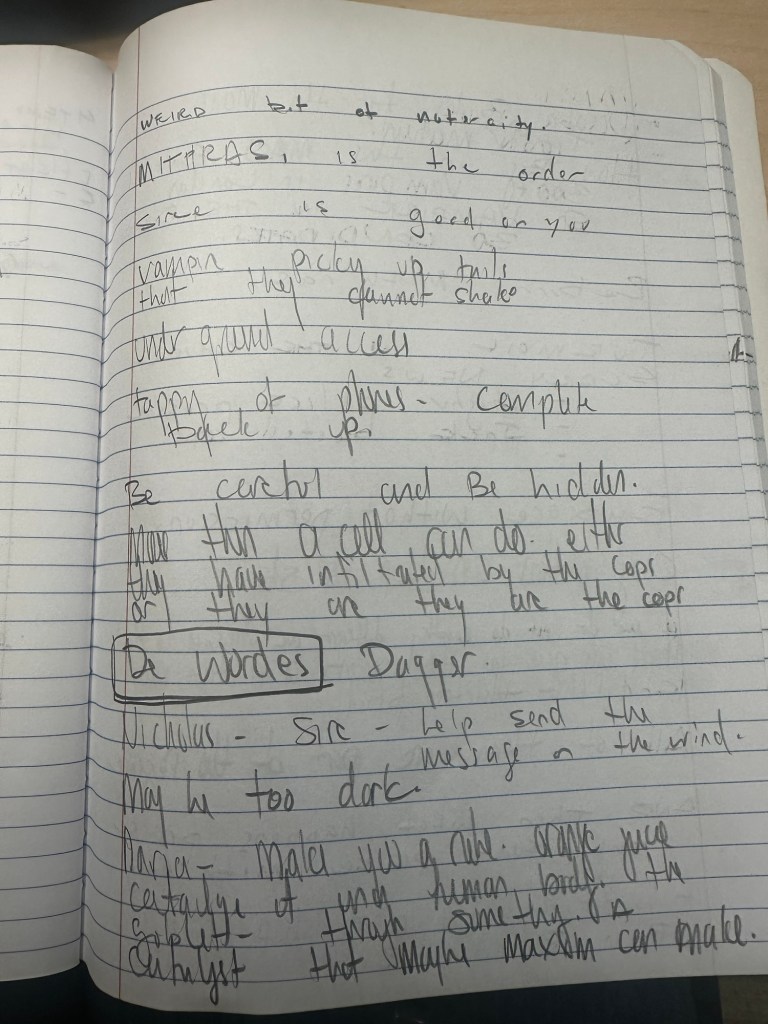 WEIRD bit of notoraity.
MITHRAS, is the order
since is good on you
vampin picky up tails
that they cannot shake
undr ground access
tappin of phones - Complete
lock up.
Be careful and Be hidden.
More thn a cell can do. eithr
they have infiltrated by the cops
or they are they are the cops
De Wordes Dagger.
Nicholas - Sire - help send the
message on the wind.
May be too dark.
- Makes you a
of human body. the
- through something. A
Catalyst that Maybe Maxim can make.